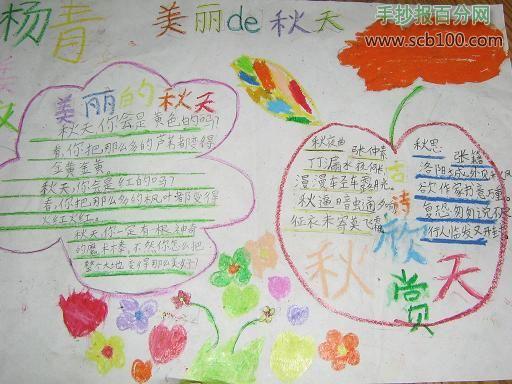 手抄报百分网
www.scb100.com
杨青
美丽de秋天
美丽的秋天
秋天你会是黄色的吗?
看,你把那么多的芦苇都变得
金黄金黄。
秋天,你会是红的吗?
看,你把那么多的枫叶都变得
火红火红。
秋天,你一定有根神奇
的魔术棒,不然你怎么把
整个大地变得那么美好?
秋夜曲 张仲素
丁丁漏水夜何长,
漫漫轻云露月光。
秋逼暗虫通夕
征衣未寄莫飞霜
秋思 张籍
洛阳城里见秋风
欲作家书意万重。
复恐匆匆说不尽
行人临发又开封
古诗欣赏
秋天